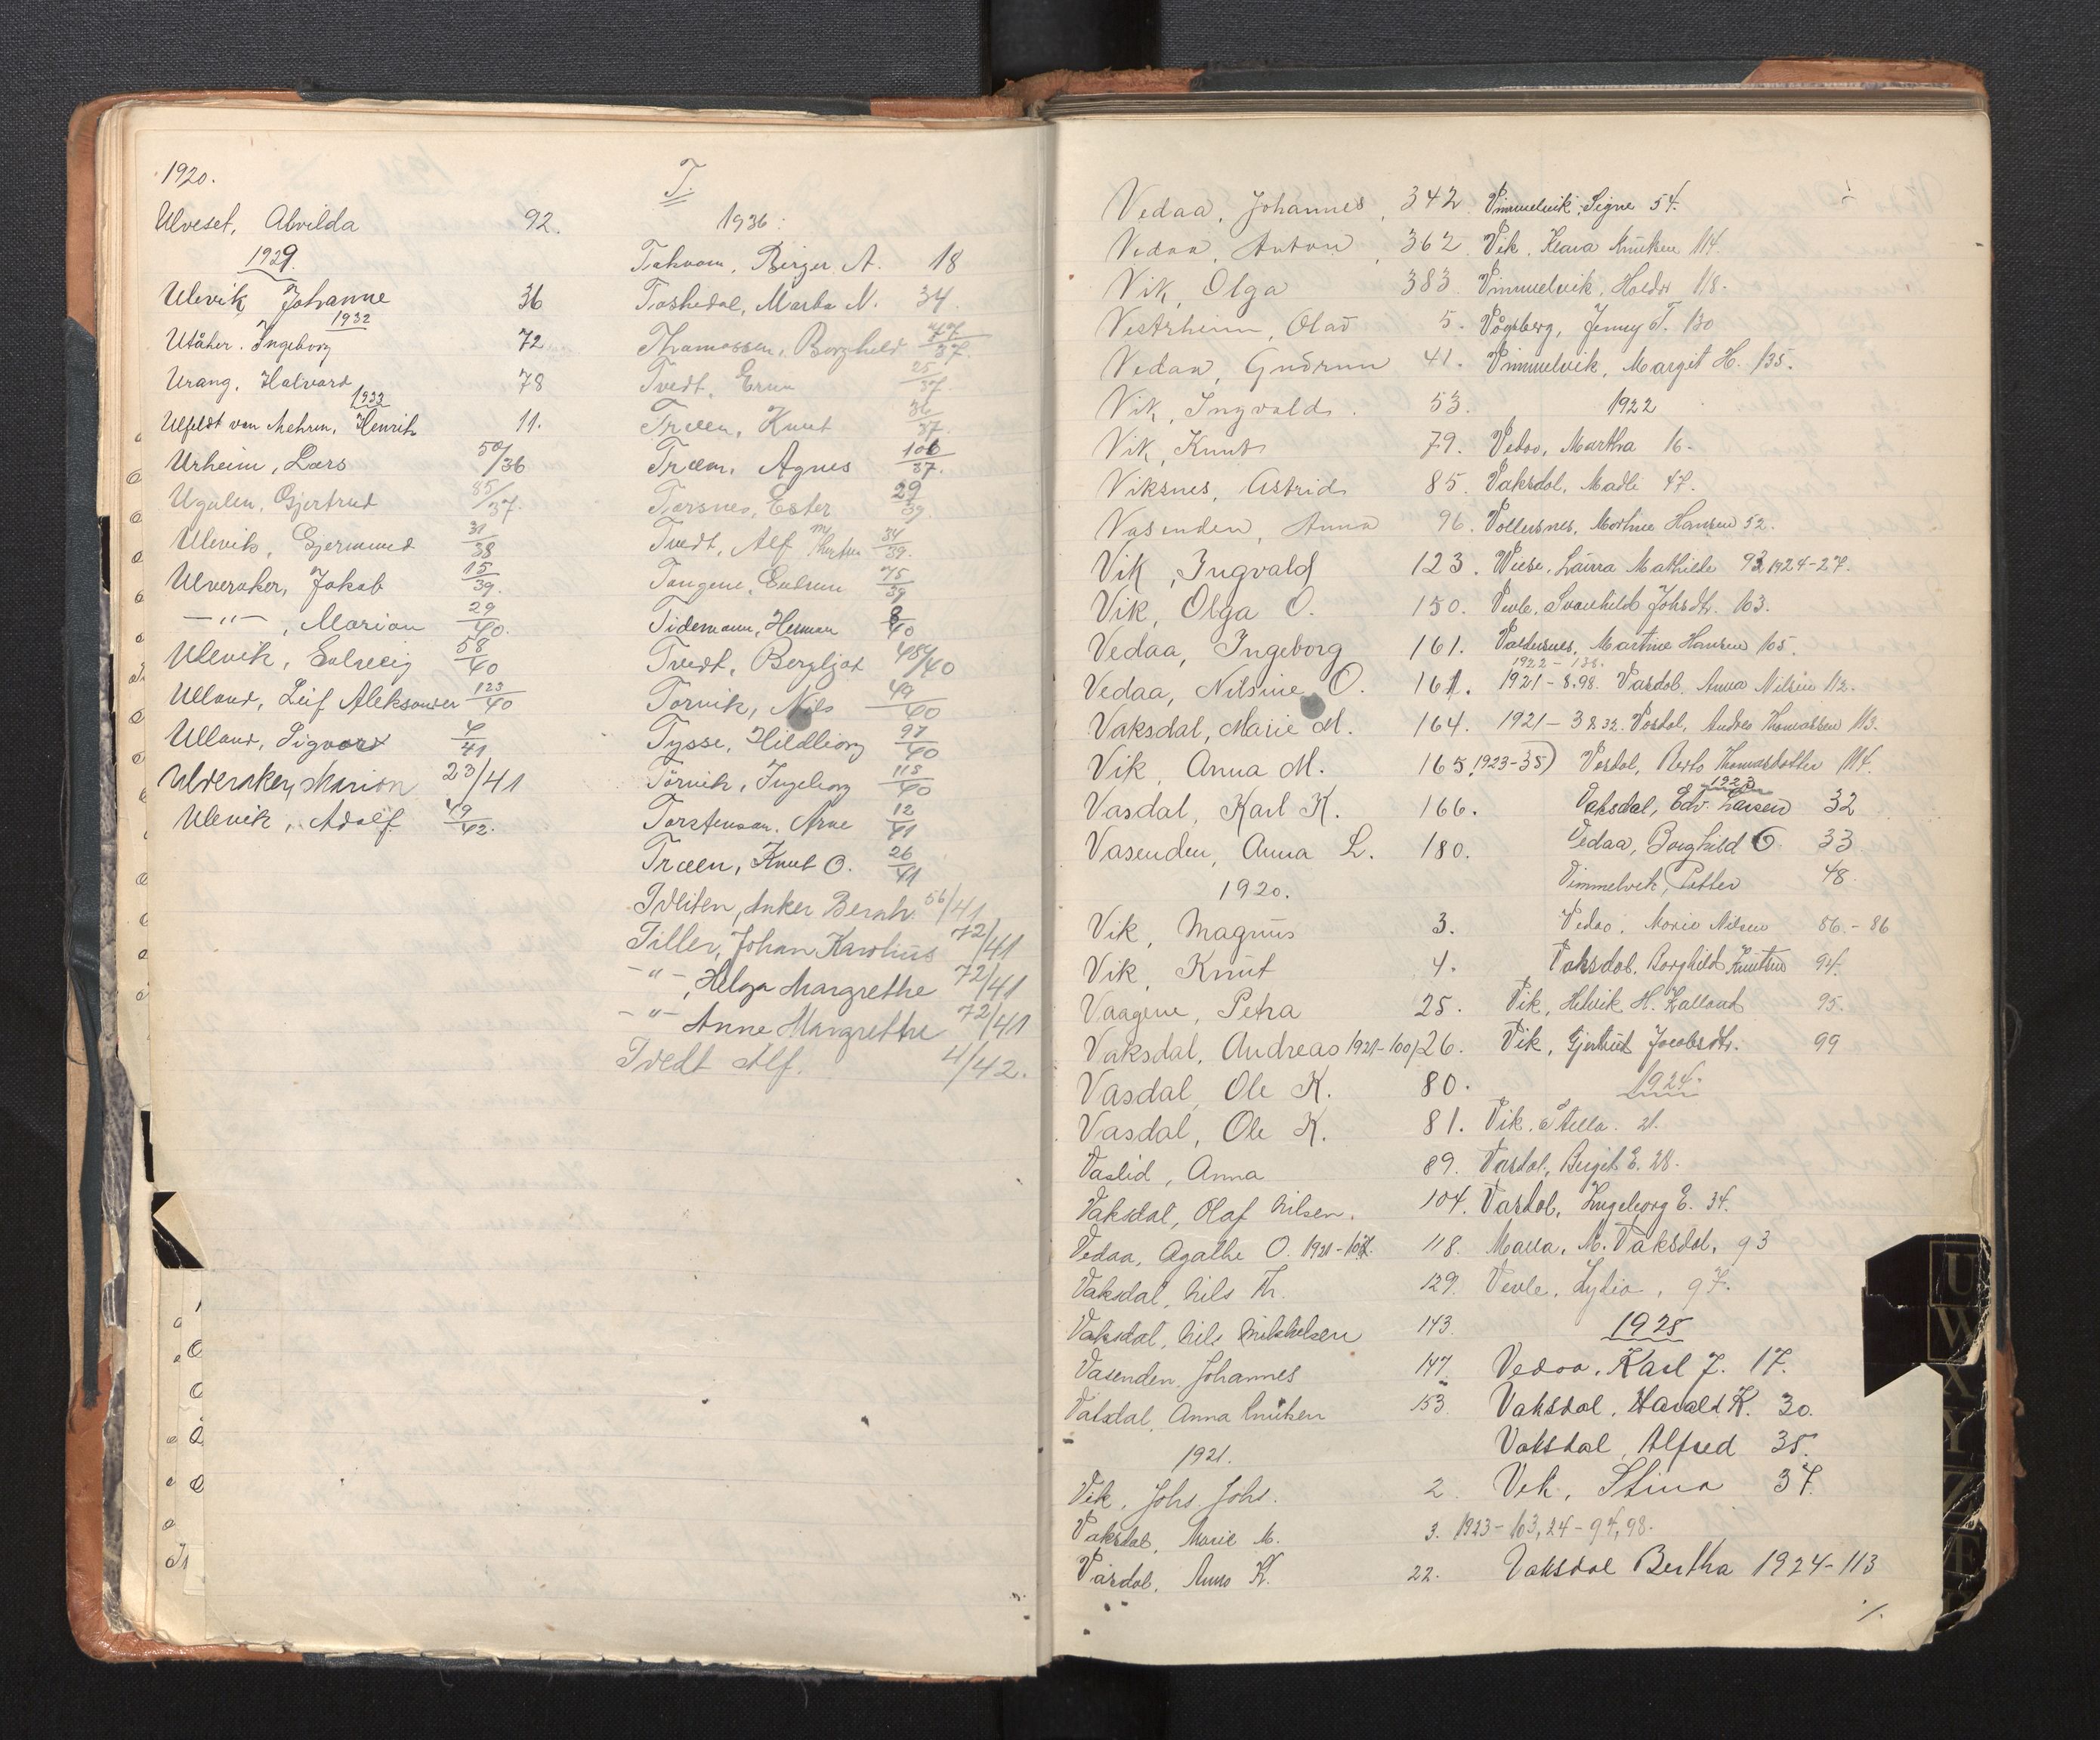 1920.
Ulveset, Alvilda 92.
1929.
Ulevik Johanne 36
1932
Utåker. Ingeborg 72
Urang, Halvard 78
1933
Ulfeldt von Mehren, Henrik 11.
Urheim, Lars 50/36
Ugulen, Gjertrud 85/37.
Ulevik, Gjermund 31/38
Ulveraker, Jakob 15/39.
—"—, Marian 29/40.
Ulevik, Solveig 58/40
Ulland, Leif Aleksander 123/40
Ulland, Sigvard 4/41
Ulveraker, Marion 23/41
Ulevik, Adolf 49/42.
T.
1936.
Takvam, Birger A. 18
Toskedal, Marta N. 34
Thomassen, Borghild 77/37.
Tvedt, Erna 25/37.
Træen, Knut 36/37.
Træen, Agnes 106/37.
Torsnes, Ester 29/39.
Tvedt, Alf 34/39.
Tangene, Gudrun 75/39
Tidemann, Herman 8/40
Tvedt, Bergljot 48/40
Torvik, Nils 49/40
Tysse, Hildborg 97/40
Tørvik, Ingeborg 118/40
Torstenson, Arne 12/41
Træen, Knut O. 26/41
Tveiten, Anker Bernh. 56/41
Tiller, Johan Karolius 72/41
—"—, Helga Margrethe 72/41
—"— Anne Margrethe 72/41
Tvedt Alf. 4/42.
Vedaa, Johannes, 342
Vedaa, Anton, 362
Vik, Olga 383
Vestrheim, Olav 5.
Vedaa, Gudrun 41.
Vik, Ingvald. 53.
Vik, Knut 79.
Viksnes, Astrid 85.
Vasenden, Anna 96.
Vik, Ingvald 123.
Vik, Olga O. 150.
Vedaa, Ingeborg 161.
Vedaa, Nilsine O. 161.
Vaksdal, Marie M. 164.
Vik, Anna M. 165. 1923-35)
Vasdal, Karl K. 166.
Vasenden, Anna L. 180.
1920.
Vik, Magnus 3.
Vik, Knut 4.
Vaagene, Petra 25.
Vaksdal, Andreas 1921-100, 26.
Vasdal, Ole K. 80.
Vasdal, Ole K. 81.
Vaslid, Anna 89.
Vaksdal, Olaf Nilsen. 104.
Vedaa, Agathe O. 1921-107. 118.
Vaksdal, Nils Th. 129.
Vaksdal, Nils Mikkelsen 143
Vasenden, Johannes 147
Vaksdal, Anna Knutsen 153
1921.
Vik, Johs. Johs. 2.
Vaksdal, Marie M. 3. 1923-103, 24-94, 98.
Vasdal, Anna K. 22.
Vimmelvik, Signe 54.
Vik, Klara Knutsen 114.
Vimmelvik, Haldor 118.
Vågsberg, Jenny T. 130
Vimmelvik, Margit H. 135.
1922
Vedaa, Martha 16.
Vaksdal, Madli 47.
Vollersnes, Martine Hansen 52.
Wiese, Laura Mathilde 93 1924-27.
Vevle, Svanhild Johsdtr. 103.
Valdersnes, Martine Hansen 105.
1922-138.
1921-8.98. Vasdal, Anna Nilsen 112.
1921-38.32. Vasdal, Andrea Thomassen 113.
Vasdal, Berta Thomasdatter 114.
1923
Vaksdal, Edv. Larsen 32
Vedaa, Borghild O. 33
Vimmelvik, Petter 48.
Vedaa, Marie Nilsen 86.-86
Vaksdal, Borghild Knutsen 94.
Vik, Helvik H. Kalland 95.
Vik, Gjertrud Jacobsdtr. 99
1924.
Vik, Stella. 21.
Vasdal, Birgit E. 28.
Vasdal, Ingeborg E. 34.
Malla, M. Vaksdal, 93
Vevle, Lydia, 97.
1925
Vedaa, Karl J. 17.
Vaksdal, Harald K. 30.
Vaksdal, Alfred 35.
Vik, Stina 37.
Vaksdal Bertha 1924-113
./.
U
W
X
Y
Z
Æ